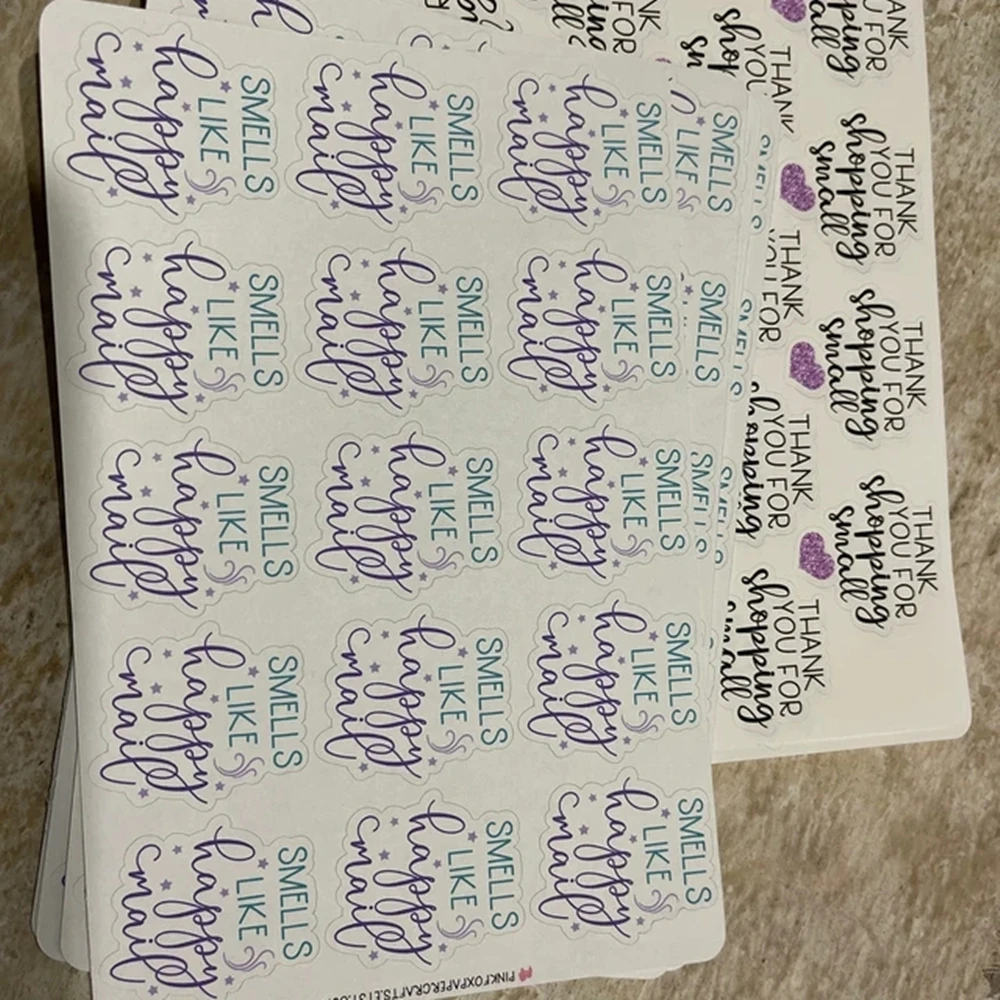 SMELLS
LIKE
happy
mail
SMELLS
LIKE
happy
mail
SMELLS
LIKE
happy
mail
SMELLS
LIKE
happy
mail
SMELLS
LIKE
happy
mail
SMELLS
LIKE
happy
mail
SMELLS
LIKE
happy
mail
SMELLS
LIKE
happy
mail
SMELLS
LIKE
happy
mail
SMELLS
LIKE
happy
mail
SMELLS
LIKE
happy
mail
SMELLS
LIKE
happy
mail
SMELLS
LIKE
happy
mail
SMELLS
LIKE
happy
mail
SMELLS
LIKE
happy
mail
SMELLS
LIKE
SMELLS
SMELLS
THANK
YOU FOR
shopping
small
THANK
YOU FOR
shopping
small
THANK
YOU FOR
shopping
small
THANK
YOU
THANK
YOU FOR
THANK
YOU FOR
shopping
THANK
YOU FOR
shopping
small
PINKFOXPAPERCRAFTS